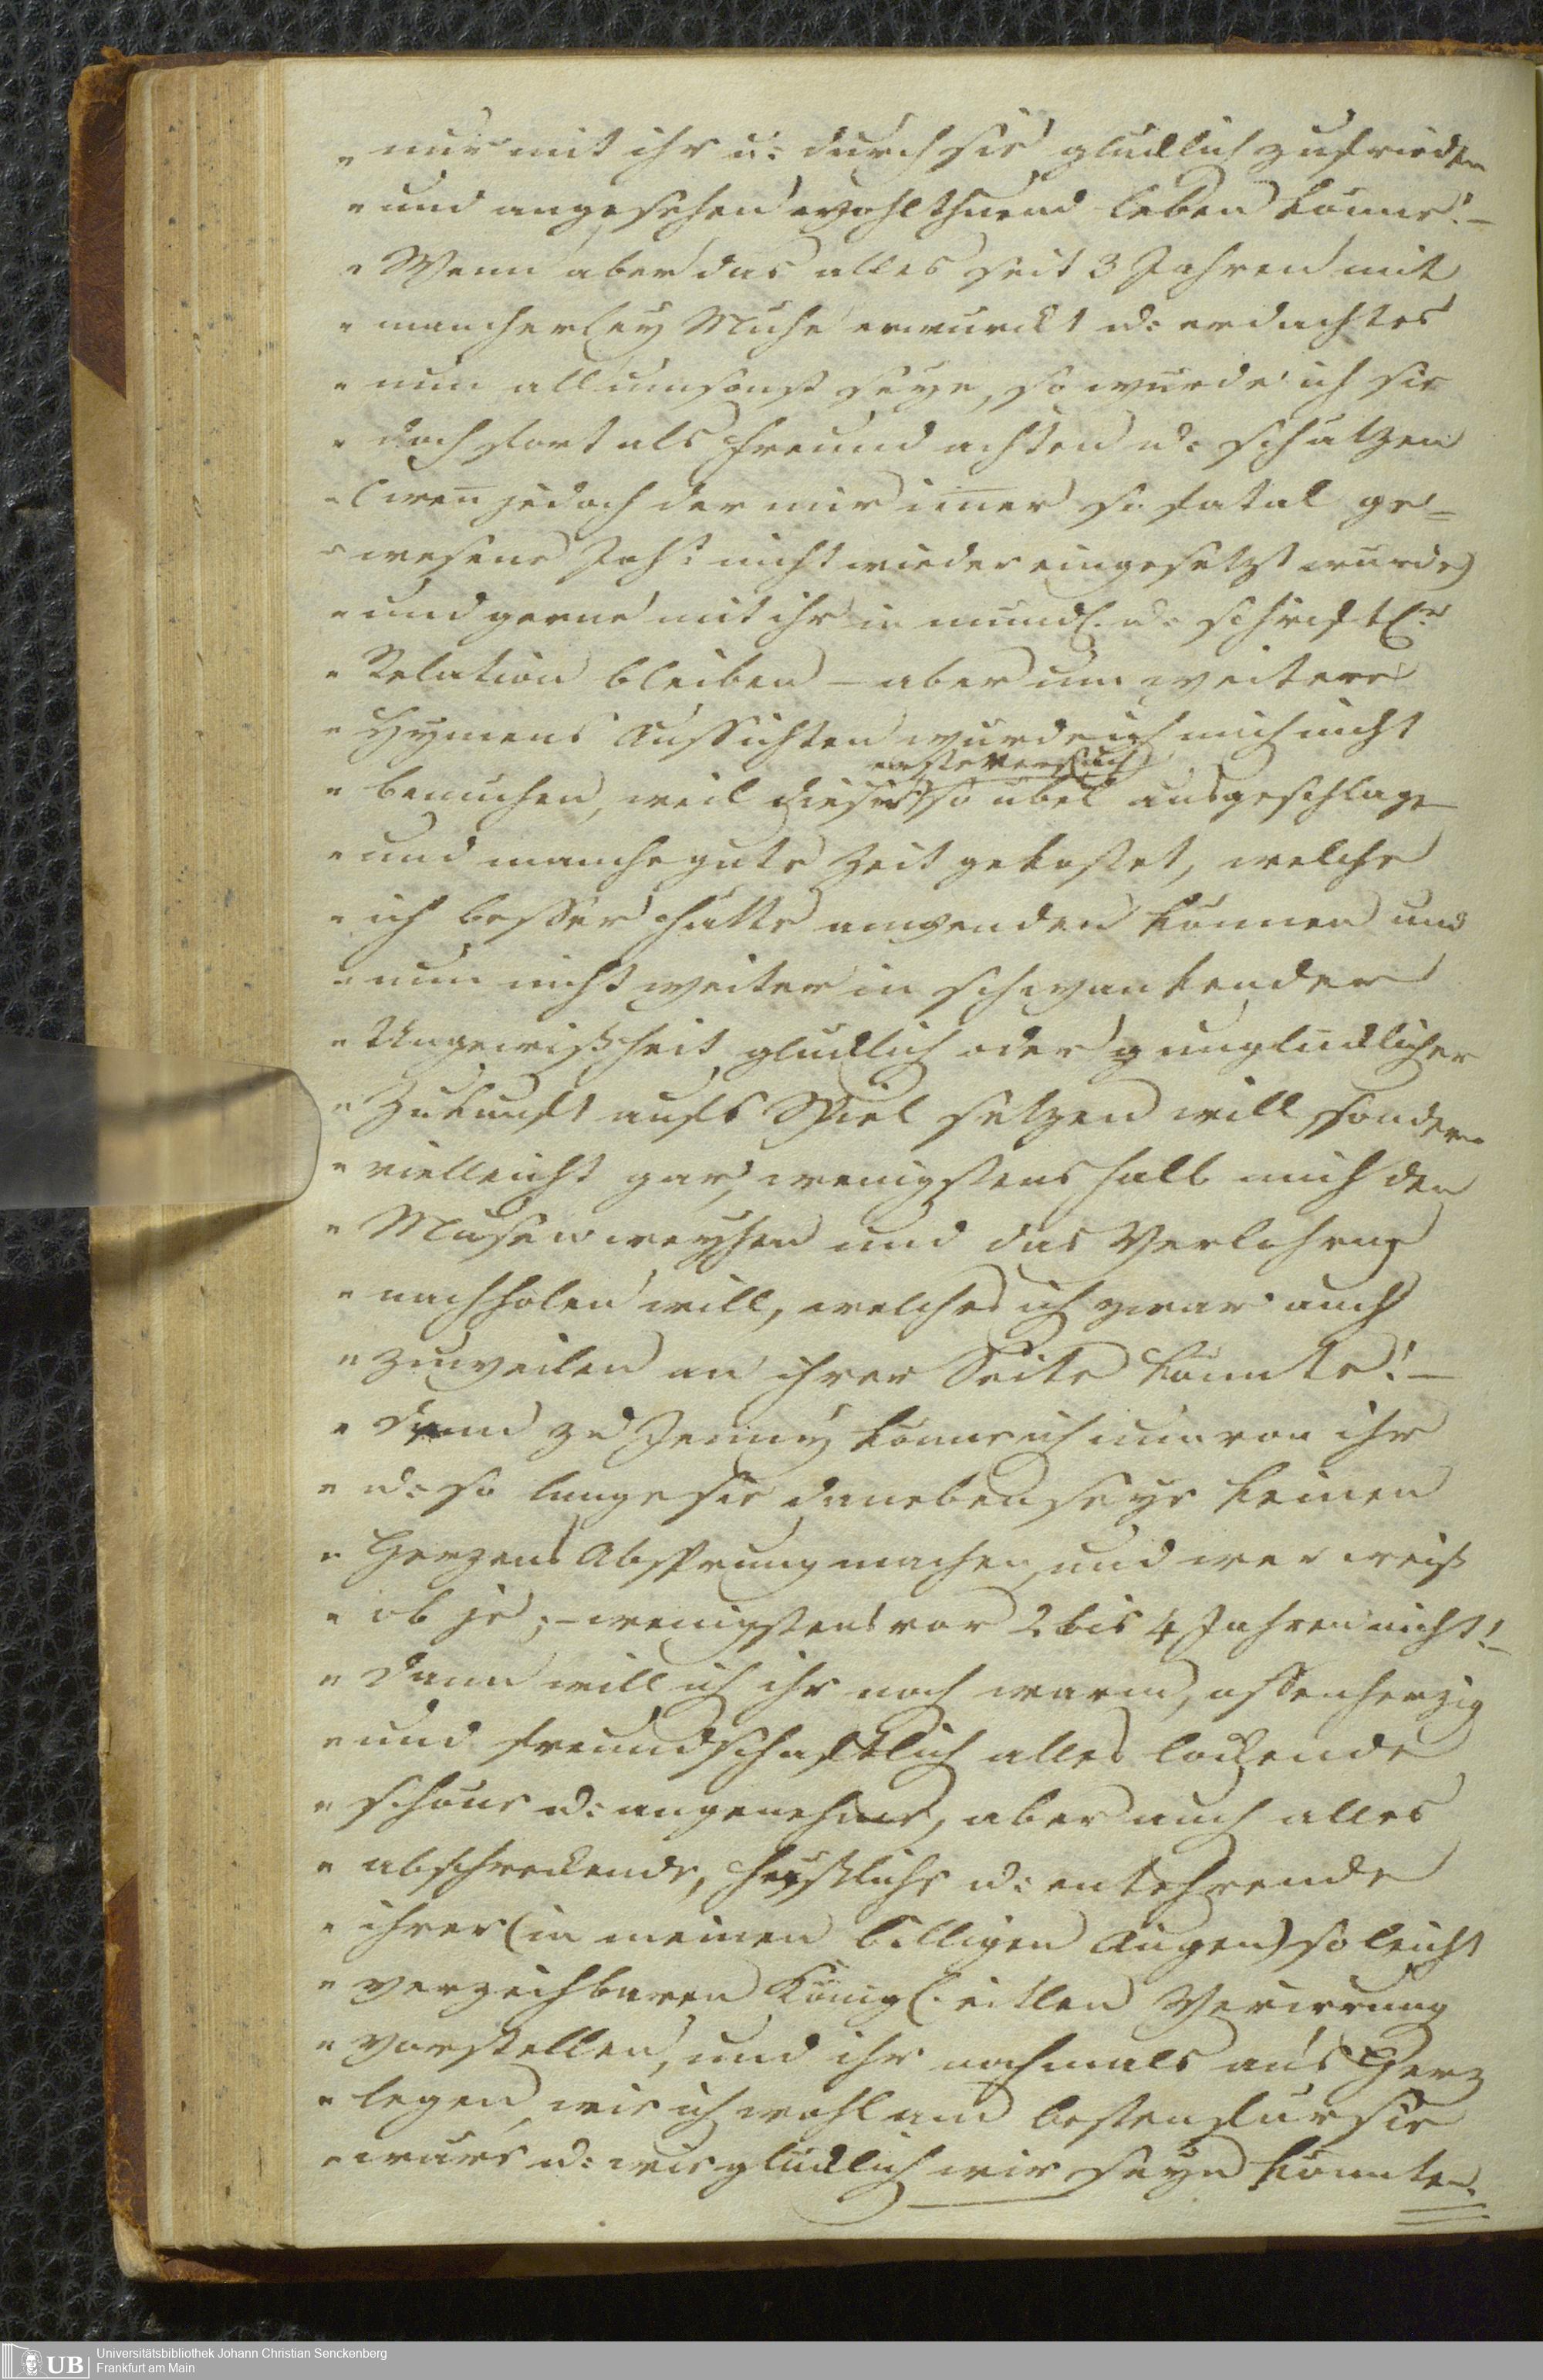 " nur mit ihr u: durch sie, glücklich zufrieden
" und angesehen wohlthuend leben könne! –
" Wenn aber das alles seit 3 Jahren mit
" mancherley Mühe erwurckt u: erdachtes
" nun all umsonst seye, so würde ich sie
" doch stort als Freund achten u: schätzen
" (wen̄ jedoch der mir im̄er so fatal ge=
" wesene Joh: nicht wieder eingesetzt würde)
" und gerne mit ihr in mündl. u: schriftl:er
" Relation bleiben – aber um weitere
" Hymens Aussichten würde ich mich nicht
erste Versuch
" bemühen, weil dieser so übel ausgeschlagen
" und manche gute Zeit gekostet, welche
" ich besser hätte anwenden können und
" nun nicht weiter in schwankender
" Ungewißheit, glücklich oder unglücklicher
" Zukunft aufs Spiel setzen will, sondern
" vielleicht gar, wenigstens halb mich den
" Musen weyhen und das Verlohrne
" nachholen will, welches ich zwar auch
" zuweilen an ihrer Seite könnte! –
" Denn zu Jenny könne ich nun von ihr
" u: so lange sie daneben seye keinen
" Herzens Absprung machen, und wer weiß
" ob je; – wenigstens vor 2 bis 4 Jahren nicht! –
" Dann will ich ihr noch warm, offenherzig
" und freundschaftlich alles lockende
" schöne u: angenehme, aber auch alles
" abschreckende, häßliche u: entehrende
" ihrer (in meinen billigen Augen) so leicht
" verzeihbaren Königl. eitlen Verirrung
" vorstellen, und ihr nochmals an's Herz
" legen, wie ich wohl am besten für sie
" wäre u: wie glücklich wir seyn könnten.
Universitätsbibliothek Johann Christian Senckenberg
Frankfurt am Main
UB